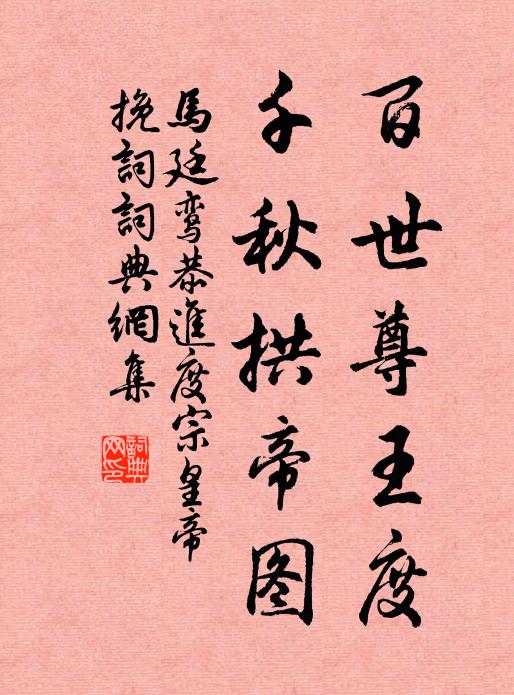 百世尊王度
千秋拱帝图
馬廷鸾恭進度宗皇帝
挽詞詞典網集
詞典網印